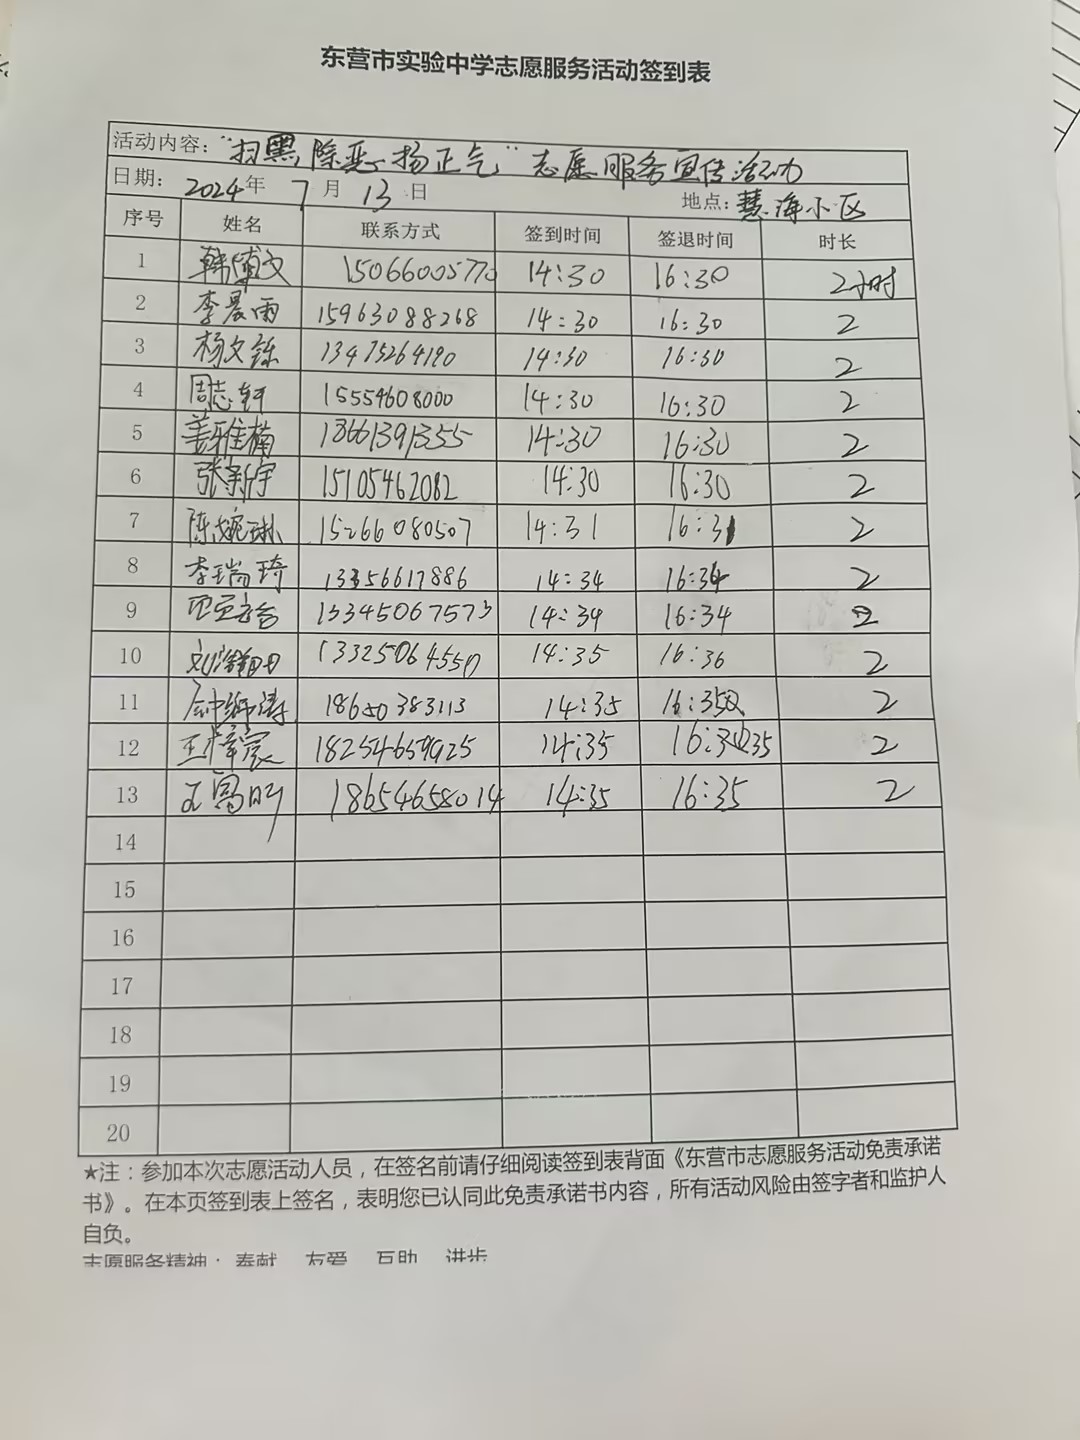 东营市实验中学志愿服务活动签到表
活动内容：“扫黑除恶扬正气”志愿服务宣传活动
日期：2024年 7月 13日 地点：慧海小区
序号 姓名 联系方式 签到时间 签退时间 时长
1 韩博文 15066005770 14:30 16:30 2小时
2 李晨雨 15963088268 14:30 16:30 2
3 杨文铄 13475264190 14:30 16:30 2
4 周志轩 15554608000 14:30 16:30 2
5 姜雅楠 18661391355 14:30 16:30 2
6 张新宇 15105462082 14:30 16:30 2
7 陈婉琳 15266080507 14:31 16:31 2
8 李瑞琦 13356617886 14:34 16:34 2
9 15345067573 14:34 16:34 2
10 13325064550 14:35 16:36 2
11 18650383113 14:35 16:35 2
12 王梓宸 18254659925 14:35 16:35 2
13 18654658014 14:35 16:35 2
14
15
16
17
18
19
20
★注：参加本次志愿活动人员，在签名前请仔细阅读签到表背面《东营市志愿服务活动免责承诺
书》。在本页签到表上签名，表明您已认同此免责承诺书内容，所有活动风险由签字者和监护人
自负。
志愿服务精神：奉献 友爱 互助 进步